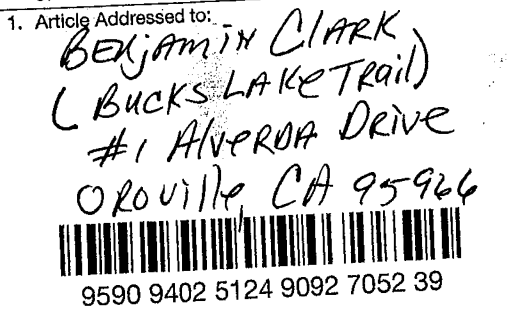 1. Article Addressed to:
BENjAmiN ClARK
(BUCKS LAKe TRail)
#1 AlveRDA DRive
OROville, CA 95966
9590 9402 5124 9092 7052 39